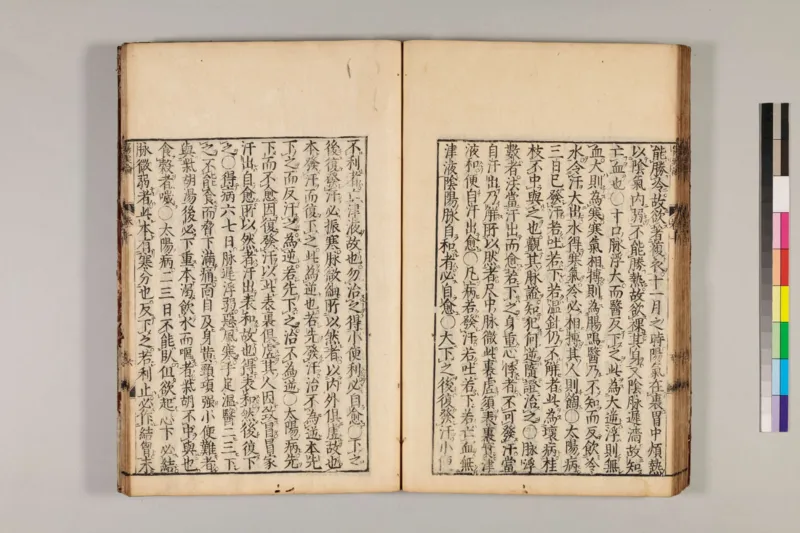 能勝冷故欲著複衣十一月之時陽氣在裏胃中煩熱
以陰氣內弱不能勝熱故欲裸其身又陰脉遲濇故知
亡血也○寸口脉浮大而醫反下之此為大逆浮則無
血大則為寒寒氣相搏則為腸鳴醫乃不知而反飲冷
水令汗大出水得寒氣冷必相搏其人則䭇○太陽病
三日已發汗若吐若下若溫針仍不解者此為壞病桂
枝不中與之也觀其脉證知犯何逆隨證治之○脉浮
數者法當汗出而愈若下之身重心悸者不可發汗當
自汗出乃解所以然者尺中脉微此裏虛須表裏實津
液和便自汗出愈○凡病若發汗若吐若下若亡血無
津液陰陽脉自和者必自愈○大下之後復發汗小便
不利者亡津液故也勿治之得小便利必自愈○下之
後復發汗必振寒脉微細所以然者以內外俱虛故也
本發汗而復下之此為逆也若先發汗治不為逆本先
下之而反汗之為逆若先下之治不為逆○太陽病先
下而不愈因復發汗以此表裏俱虛其人因致冒冒家
汗出自愈所以然者汗出表和故也得表和然後復下
之○得病六七日脉遲浮弱惡風寒手足溫醫二三下
之不能食而脅下滿痛面目及身黃頸項强小便難者
與柴胡湯後必下重本渴飲水而嘔者柴胡不中與也
食穀者噦○太陽病二三日不能臥但欲起心下必結
脉微弱者此本有寒分也反下之若利止必作結胷未